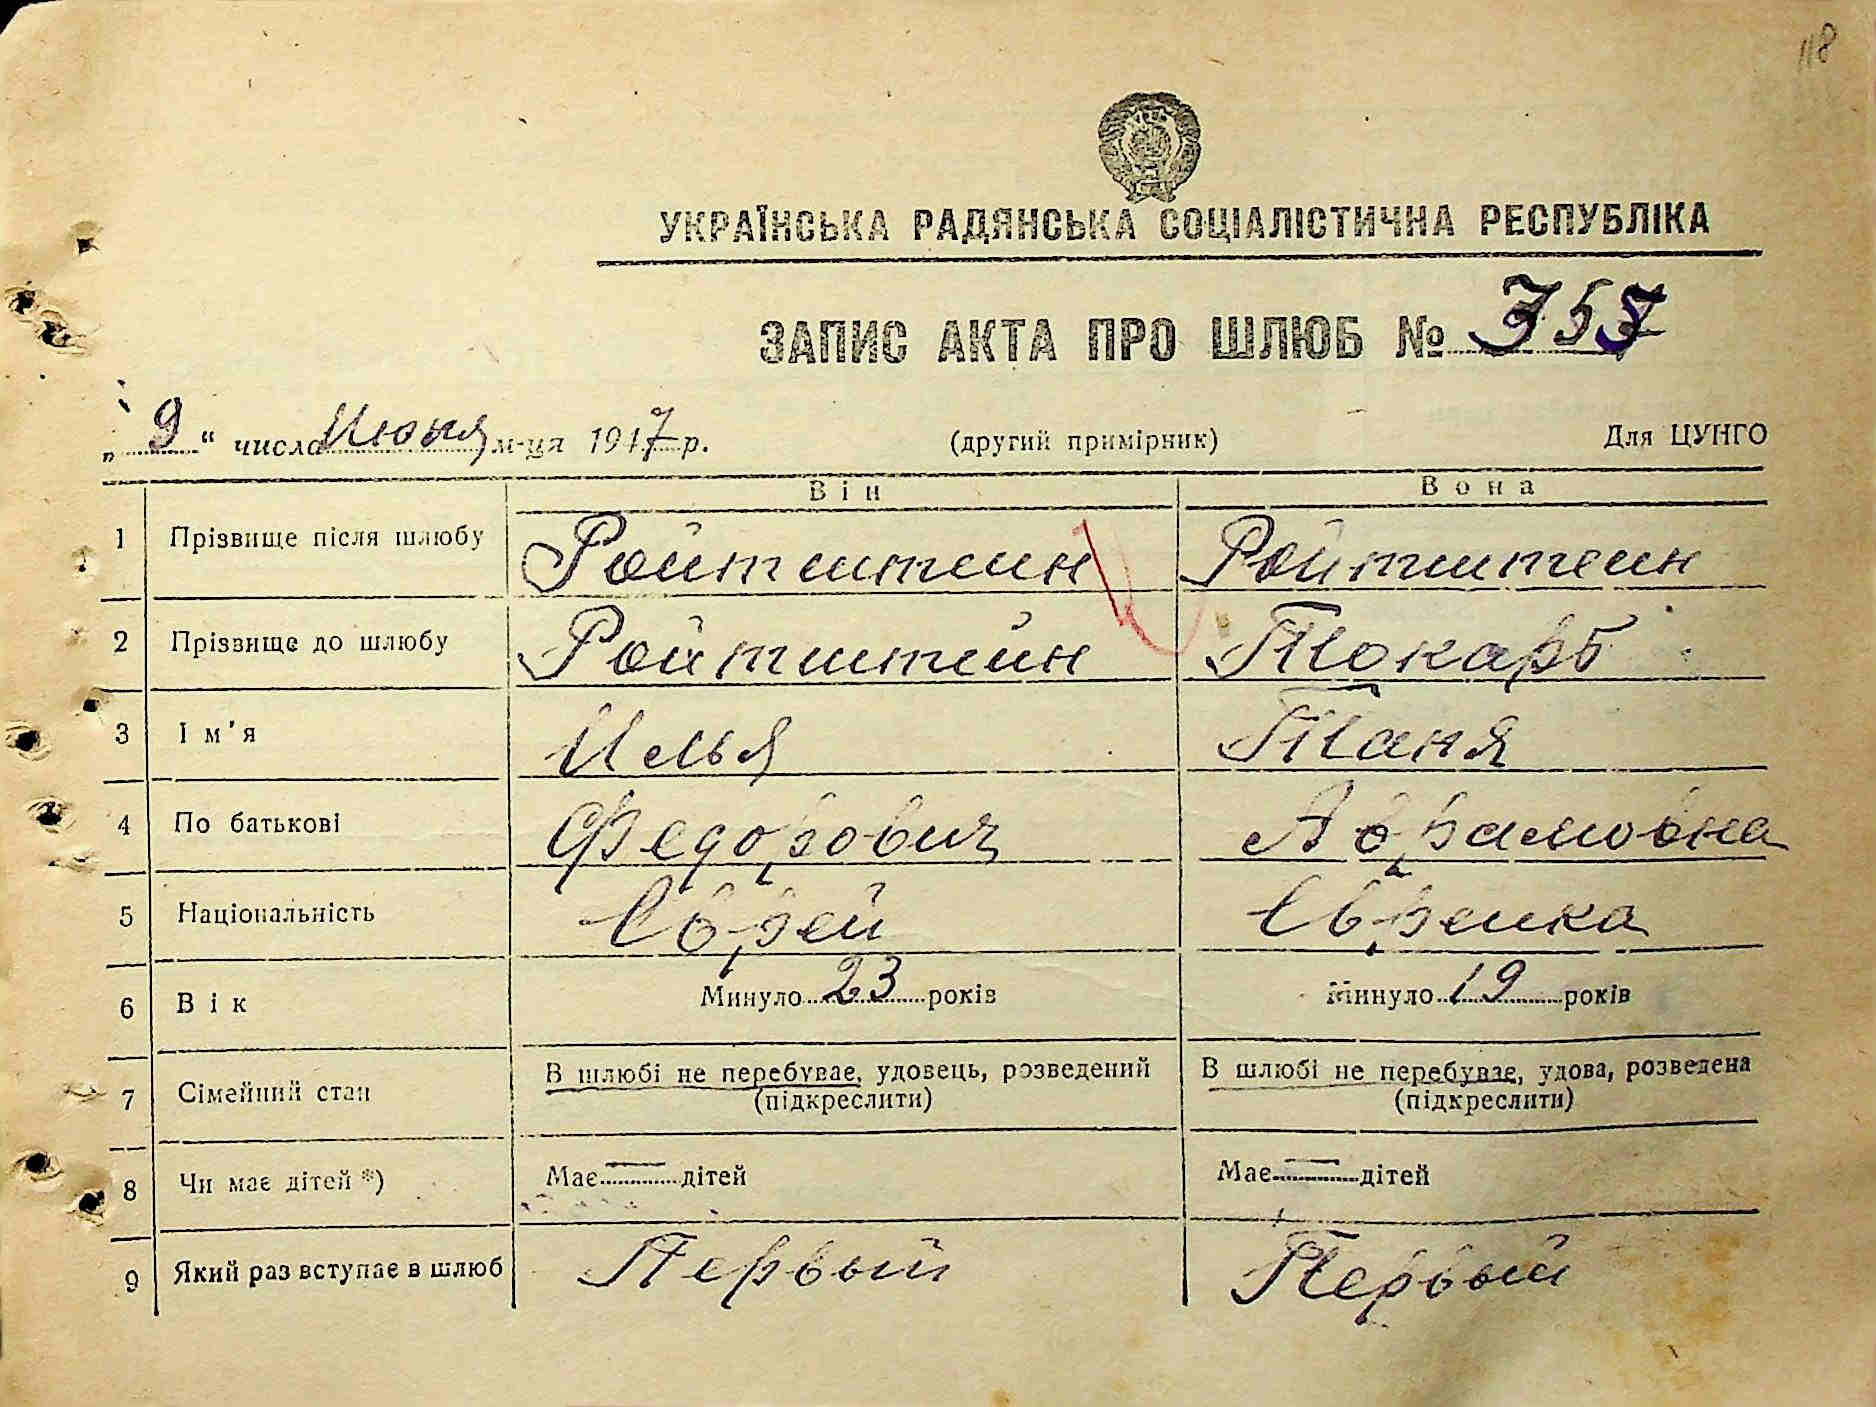 118
УКРАЇНСЬКА РАДЯНСЬКА СОЦІАЛІСТИЧНА РЕСПУБЛІКА
ЗАПИС АКТА ПРО ШЛЮБ №
„ 9 “ числа Июня м-ця 1947 р. (другий примірник) Для ЦУНГО
Він Вона
1 Прізвище після шлюбу Ройтштеин Ройтштеин
2 Прізвище до шлюбу Ройтштейн Токарь
3 Ім'я Илья Таня
4 По батькові Федорович Абрамовна
5 Національність Еврей Еврейка
6 Вік Минуло 23 років Минуло 19 років
7 Сімейний стан В шлюбі не перебуває, удовець, розведений В шлюбі не перебуває, удова, розведена
(підкреслити) (підкреслити)
8 Чи має дітей *) Має — дітей Має — дітей
9 Який раз вступає в шлюб Первый Первый